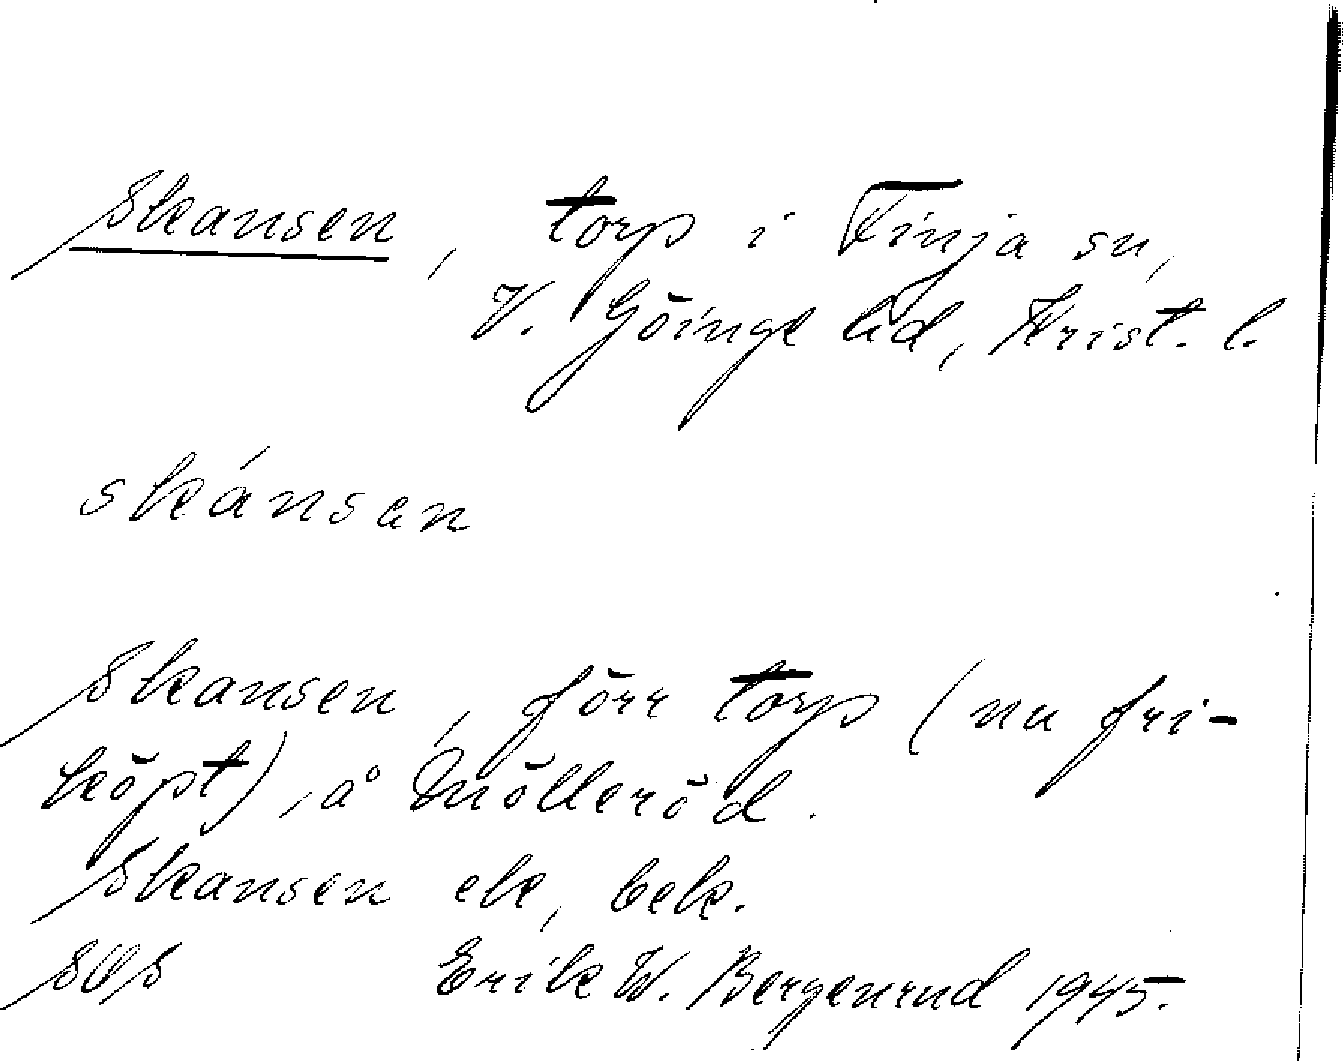 Skansen, torp i Finja sn,
V. Göinge hd, Krist. l.
skánsan
Skansen, förr torp (nu fri-
köpt), å Mölleröd.
Skansen ek, bek.
SOS Erik W. Bergenrud 1945.